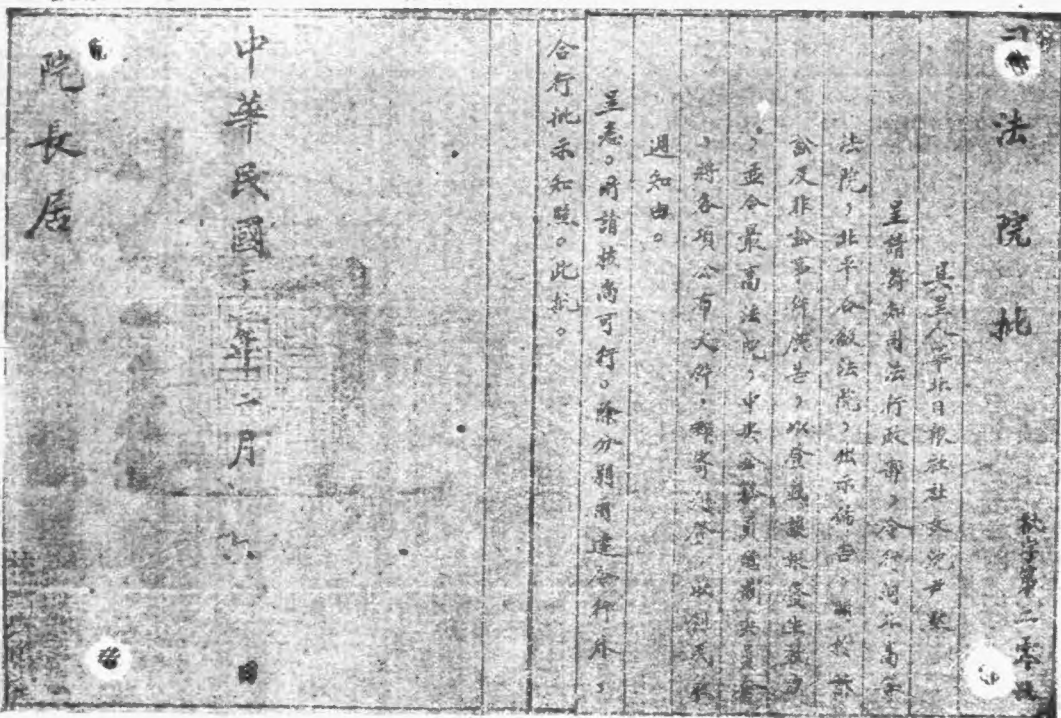 司法院批
批字第二零號
具呈人華北日報社社長沈尹默
呈請飭知司法行政部，令行河北高等
法院，北平各級法院，出示佈告，關於訴
訟及非訟事件廣告，以登載報登生效力
，並令最高法院，中央公務員懲戒委員會
，將各項公布文件，寄登，以
週知由。
呈悉。所請核尚可行。除分別函達令行外，
合行批示知照。此批。
中華民國二年二月六日
院長居